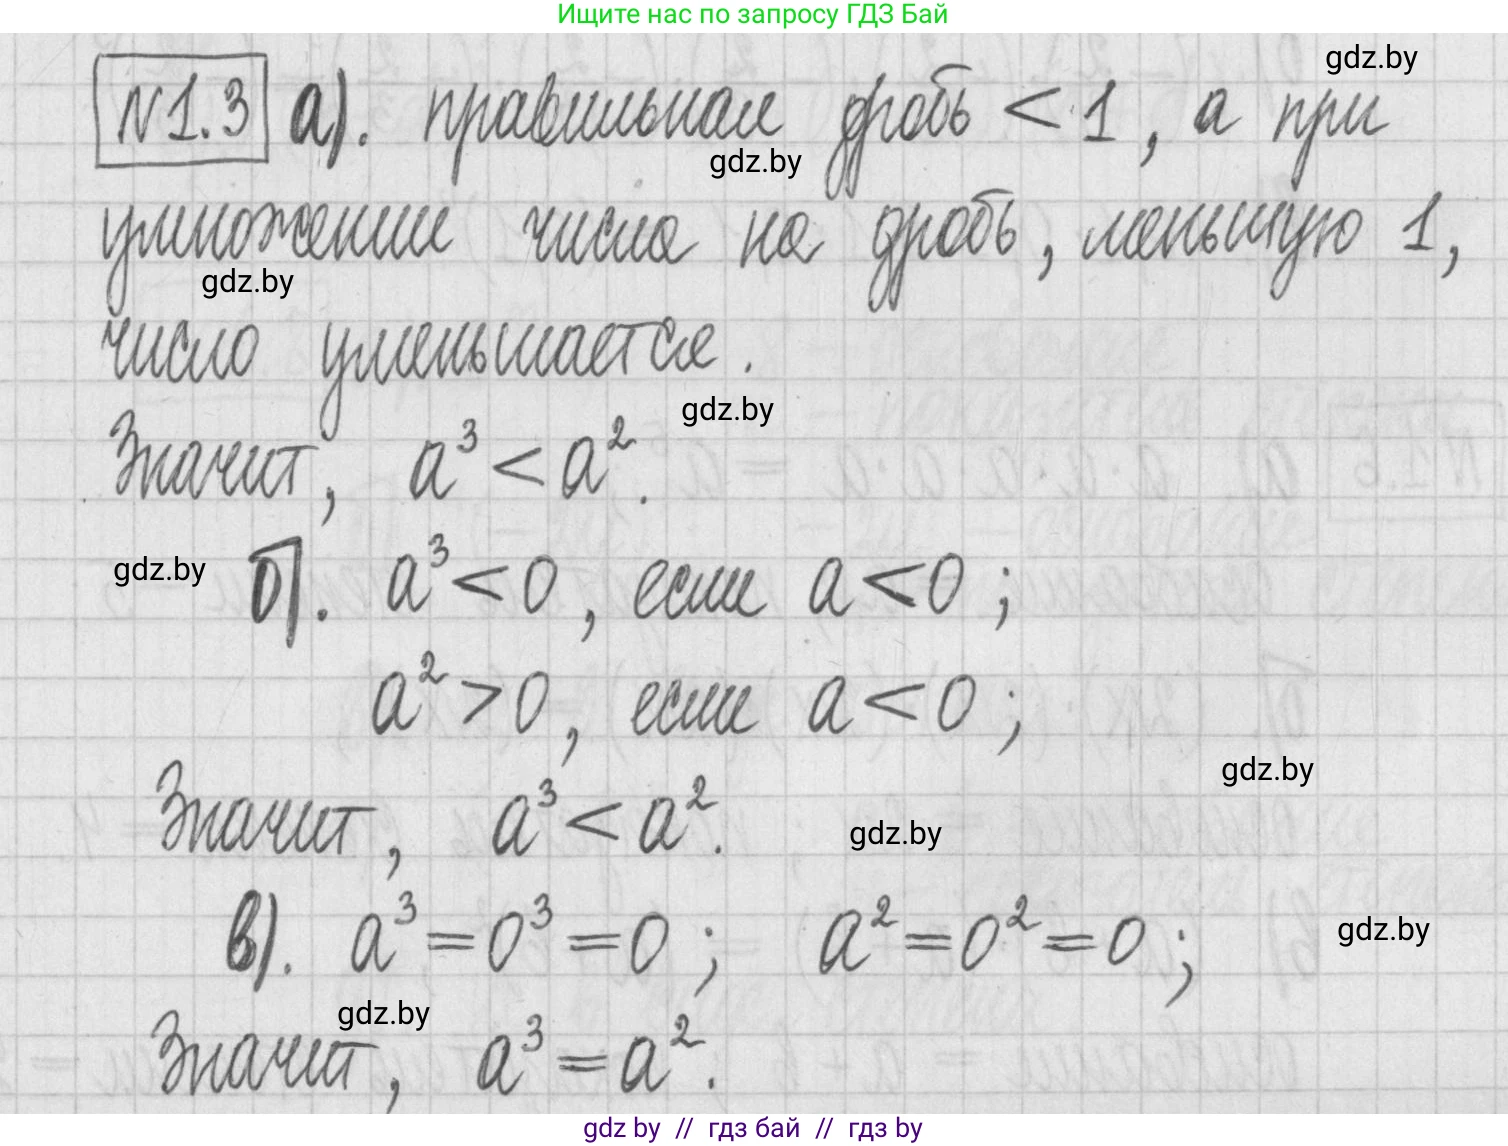 Ищите нас по запросу ГДЗ Бай
gdz.by
№1.3 а). правильная дробь < 1, а при
gdz.by
умножении числа на дробь, меньшую 1,
gdz.by
число уменьшается.
gdz.by
Значит, a³ < a².
gdz.by
б). a³ < 0, если a < 0;
a² > 0, если a < 0;
gdz.by
Значит, a³ < a².
gdz.by
в). a³ = 0³ = 0; a² = 0² = 0;
gdz.by
gdz.by
Значит, a³ = a².
gdz by // гдз бай // гдз by